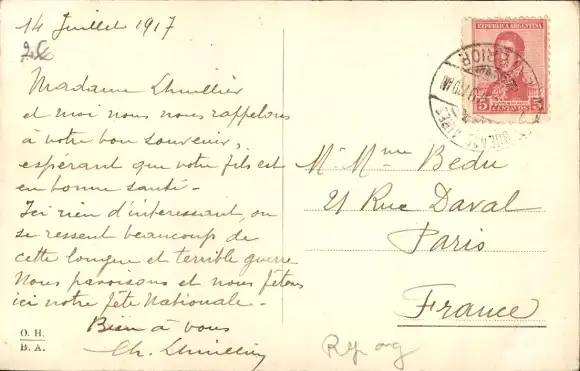 14 Juillet 1917
Madame Lhuillier
et moi nous nous rappelons
à votre bon souvenir,
espérant que votre fils est
en bonne santé -
Ici rien d'interessant, on
se ressent beaucoup de
cette longue et terrible guerre
Nous pavoisons et nous fêtons
ici notre fête Nationale -
Bien à vous
Ch. Lhuillier
O. H.
B. A.
REPUBLICA ARGENTINA
5 CENTAVOS 5
BUENOS AIRES
Mr Mme Bedu
21 Rue Daval
Paris
France
Rep arg